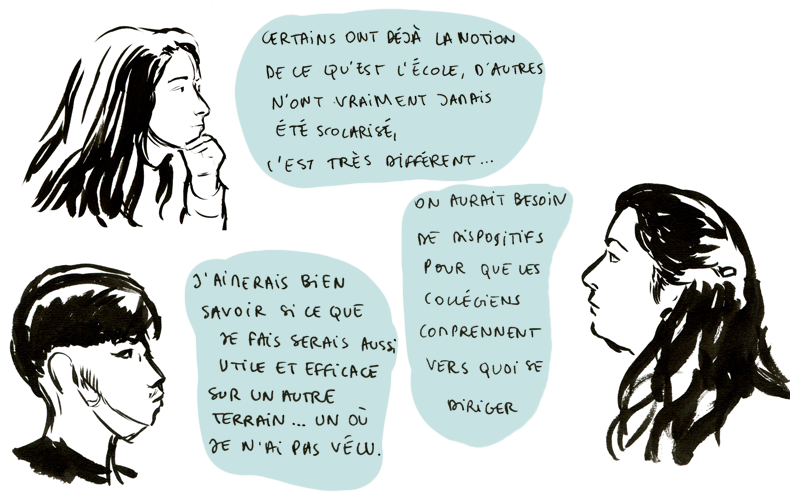 CERTAINS ONT DÉJÀ LA NOTION
DE CE QU'EST L'ÉCOLE, D'AUTRES
N'ONT VRAIMENT JAMAIS
ÉTÉ SCOLARISÉ,
C'EST TRÈS DIFFÉRENT...
ON AURAIT BESOIN
DE DISPOSITIFS
POUR QUE LES
COLLÉGIENS
COMPRENNENT
VERS QUOI SE
DIRIGER
J'AIMERAIS BIEN
SAVOIR SI CE QUE
JE FAIS SERAIS AUSSI
UTILE ET EFFICACE
SUR UN AUTRE
TERRAIN... UN OÙ
JE N'AI PAS VÉCU.